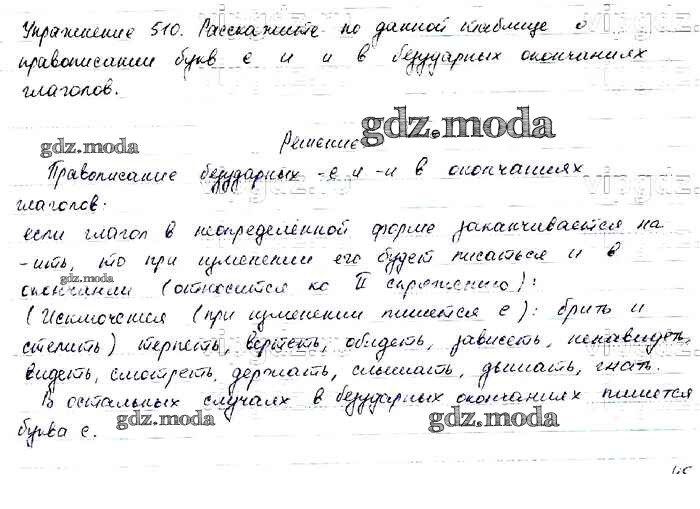 Упражнение 510. Расскажите по данной таблице о
правописании букв е и и в безударных окончаниях
глаголов.
gdz.moda
gdz.moda
Решение
Правописание безударных -е и -и в окончаниях
глаголов:
если глагол в неопределённой форме заканчивается на
-ить, то при изменении его будет писаться и в
gdz.moda
окончании (относится ко II спряжению):
(Исключения (при изменении пишется е): брить и
стелить) терпеть, вертеть, обидеть, зависеть, ненавидеть,
видеть, смотреть, держать, слышать, дышать, гнать.
В остальных случаях в безударных окончаниях пишется
буква е.
gdz.moda
gdz.moda